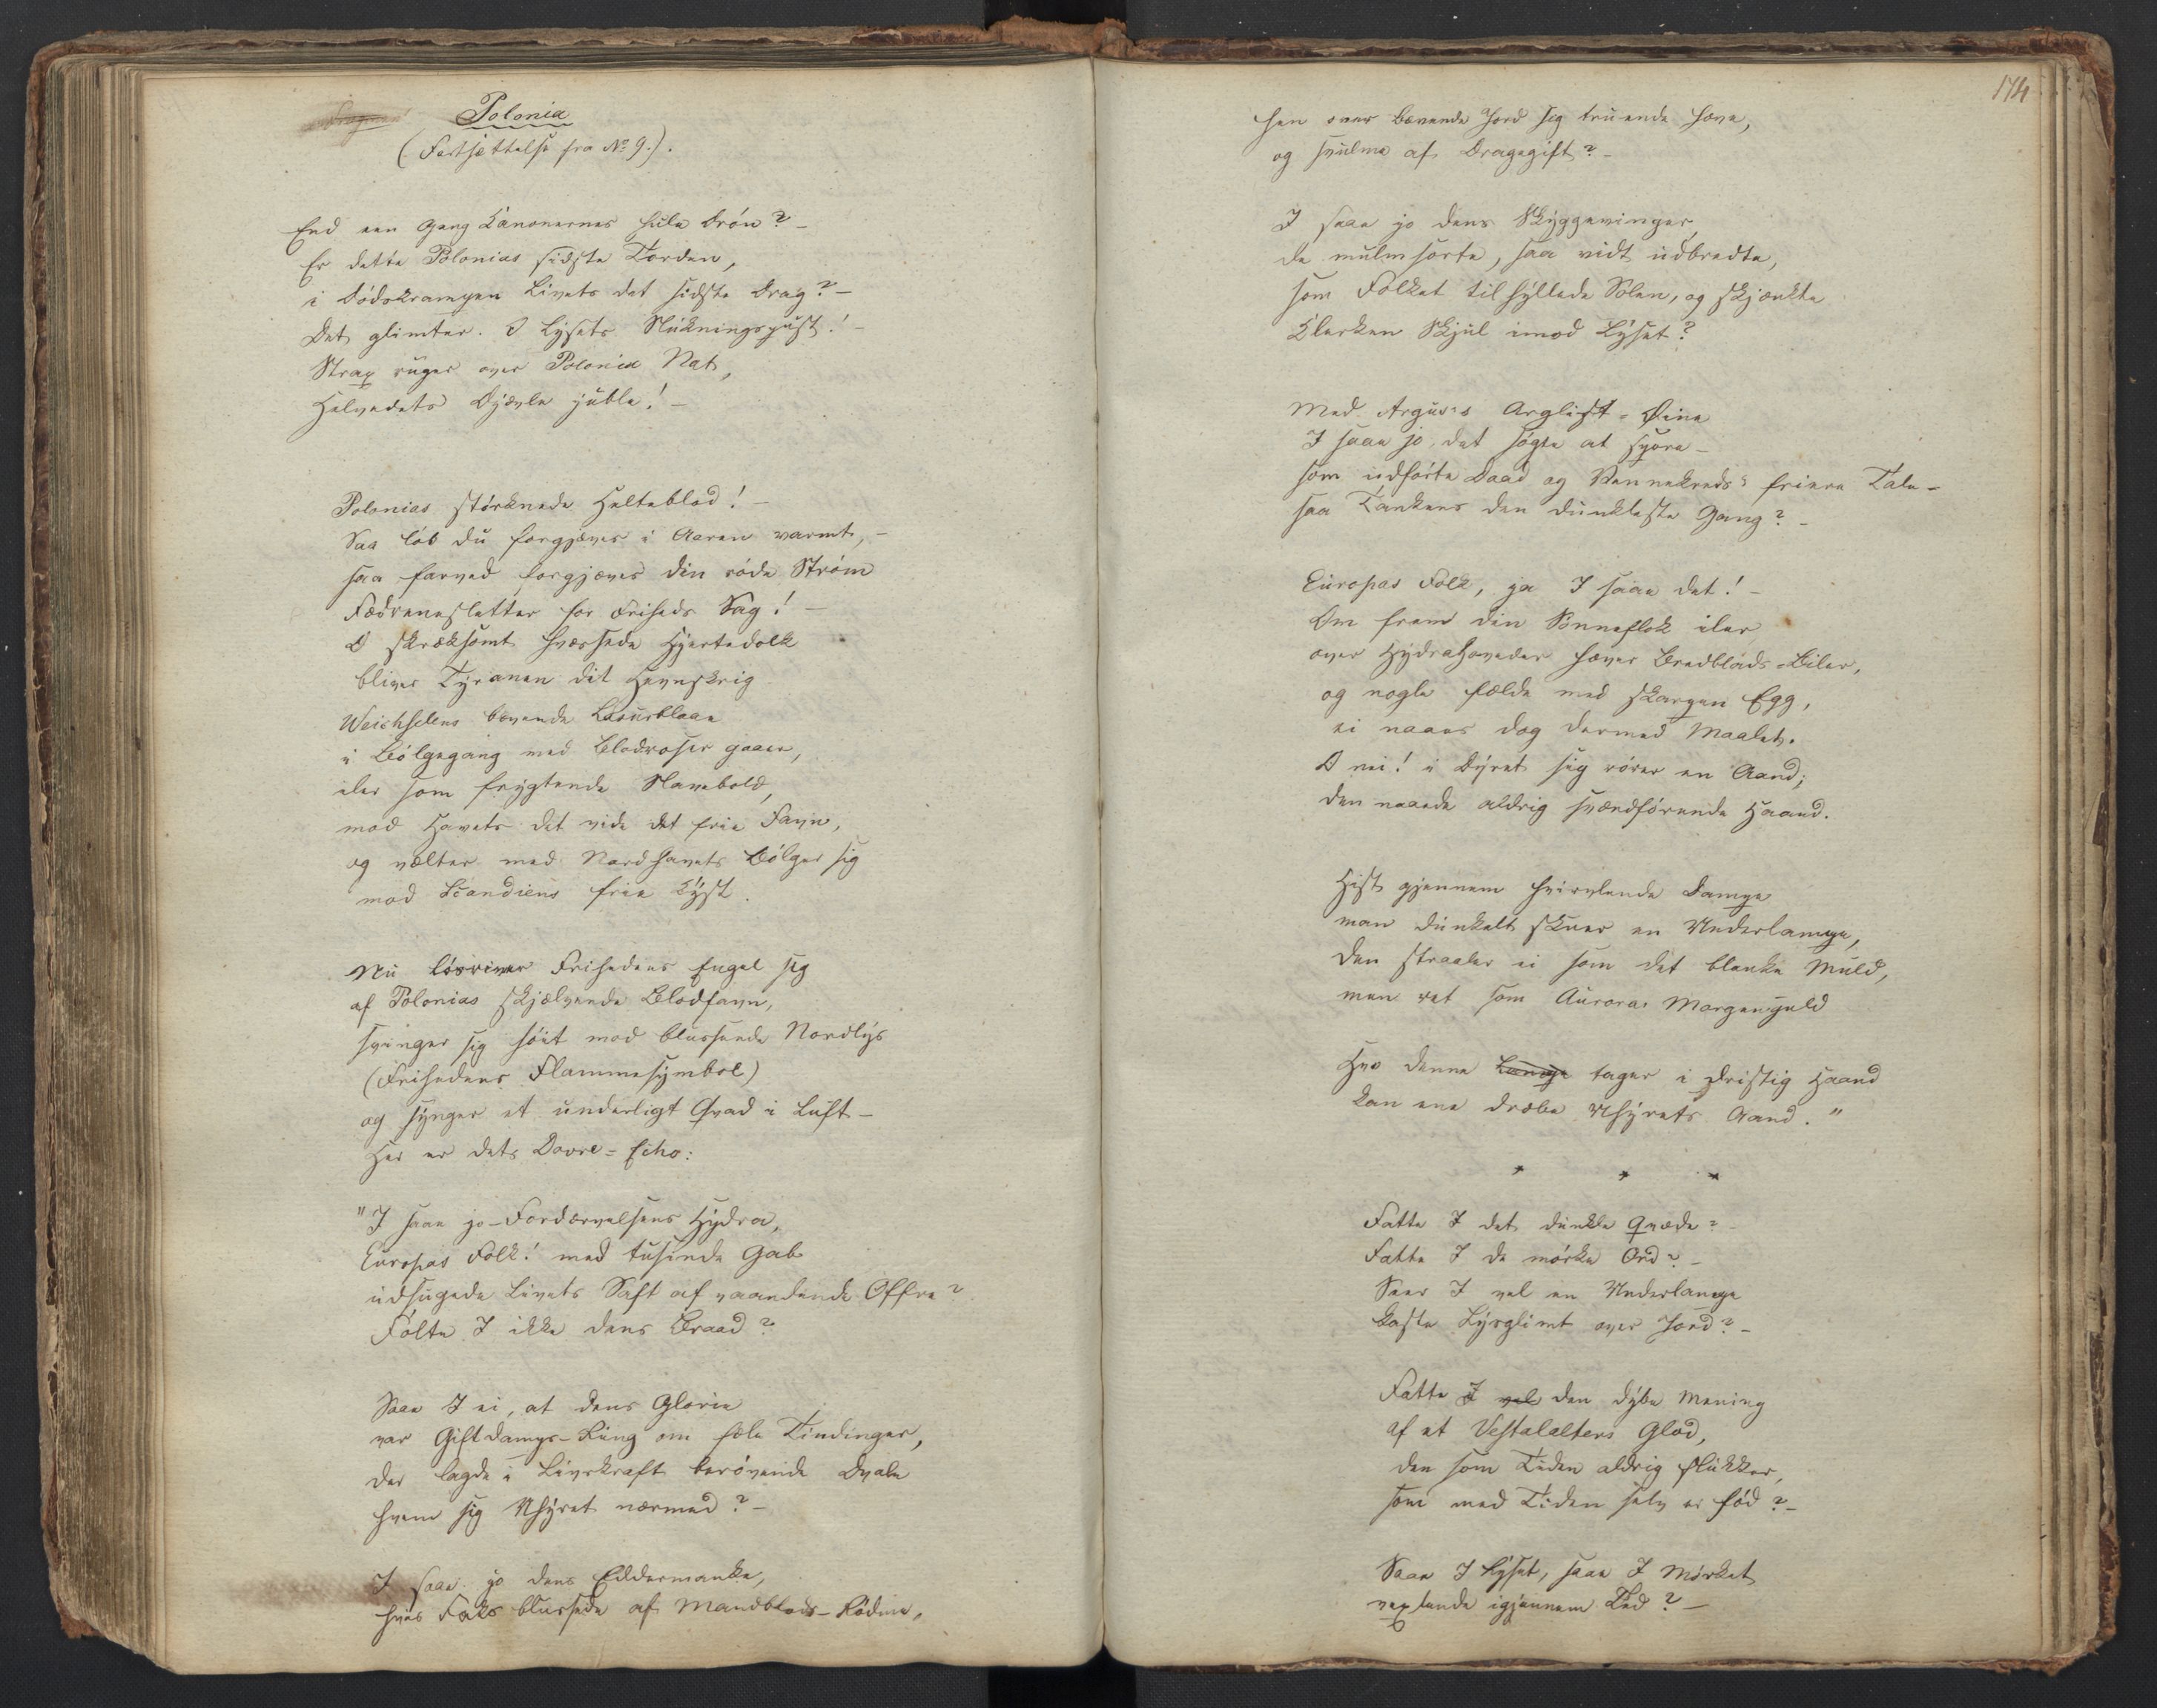 Polonia
(Fortsættelse fra No 9.).
End een Gang Kanonernes hule Drön? –
Er dette Polonias sidste Torden,
i Dödskrampen Livets det sidste Drag? –
Det glimter. O Lysets Slukningspust! –
Strax ruger over Polonia Nat,
Helvedets Djævle juble! –
Polonias störknede Helteblod! –
Saa löb du forgjæves i Aaren varmt, –
saa farved forgjæves din röde Ström
Fædreneslетter for Friheds Sag! –
O skræksomt hvæssede Hjertedolk
bliver Tyranen dit Hevnskrig
Weichselens bævende Lasurblaae
i Bölgegang med Blodroser gaaer,
iler som frygtende Slavebold,
mod Havets det vide det frie Favn,
og vælter med Nordhavets Bölger sig
mod Scandiens frie Kyst.
Nu lösriver Frihedens Engel sig
af Polonias skjælvende Blodfavn,
svinger sig höit mod blussende Nordlys
(Frihedens Flammesymbol)
og synger et underligt Qvad i Luft –
Her er dets Dovre-Echo:
"I saae jo – Fordærvelsens Hydra,
Europas Folk! med tusinde Gab
udsugede Livets Saft af vaandende Offre?
Fölte I ikke dens Braad?
Saae I ei, at dens Glorie
var Giftdamps-Ring om fæle Tindinger,
der lagde i Livskraft berövende Dvale
hvem sig Uhyret nærmed? –
I saae jo dens Eddermanke,
hvis Faks blussede af Mandblods-Rödme,
174
hen over bævende Jord sig truende hæve,
og svulme af Dragegift? –
I saae jo dens Skyggevinger
de mulmsorte, saa vidt udbredte,
som Folket tilhyllede Solen, og skjænkte
Klerken Skjul imod Lyset?
Med Argus's Arglist-Øine
I saae jo, det søgte at spore –
som udförte Daad og Vennekreds's friere Tale –
saa Tankens den dunkleste Gang? –
Europas Folk, ja I saae det! –
Om frem din Sönneflok iler
over Hydrahoveder hæver Bredblads-Biler,
og nogle fælde med skarpen Egg,
ei naaes dog dermed Maalet.
O nei! i Dyret sig rörer en Aand;
den naaede aldrig sværdförende Haand.
Hist gjennem hvirvlende Dampe
man dunkelt skuer en Underlampe,
den straaler ei som det blanke Muld,
men ret som Auroras Morgenguld
Hvo denne Lampe tager i dristig Haand
kan ene dræbe Uhyrets Aand."
* * *
Fatte I det dunkle Qvæde? –
Fatte I de mörke Ord? –
Seer I vel en Underlampe
kaste Lysglimt over Jord? –
Fatte I vel den dybe Mening
af et Vestalalters Glöd,
den som Tiden aldrig slukker,
som med Tiden selv er föd? –
Saae I Lyset, saae I Mörket
vexlende igjennem Tid? –